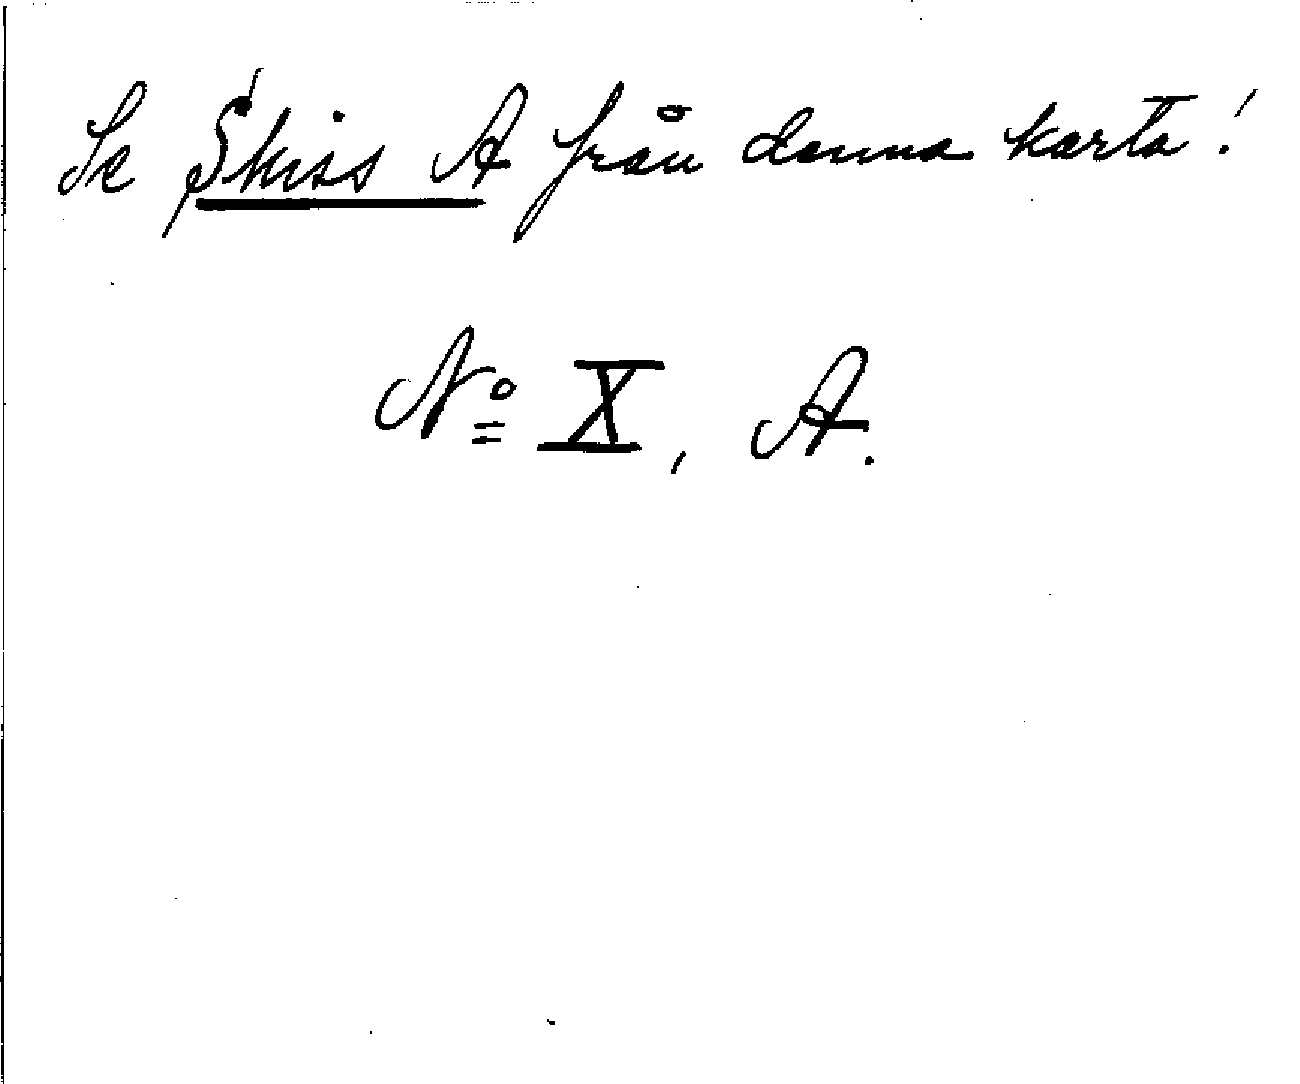 Se Skiss A från denna karta!
No X, A.